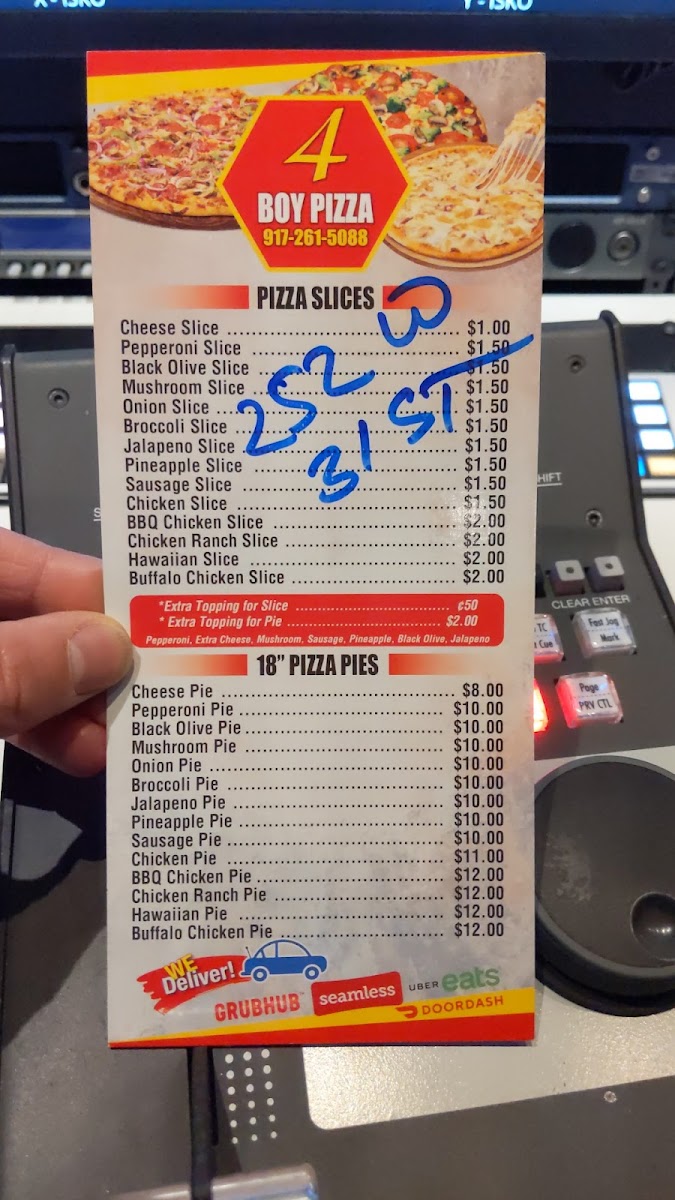 X - ISRO
Y - ISRO
4
BOY PIZZA
917-261-5088
PIZZA SLICES
Cheese Slice ........................................ $1.00
Pepperoni Slice ........................................ $1.50
Black Olive Slice ........................................ $1.50
Mushroom Slice ........................................ $1.50
Onion Slice ........................................ $1.50
Broccoli Slice ........................................ $1.50
Jalapeno Slice ........................................ $1.50
Pineapple Slice ........................................ $1.50
Sausage Slice ........................................ $1.50
Chicken Slice ........................................ $1.50
BBQ Chicken Slice ........................................ $2.00
Chicken Ranch Slice ........................................ $2.00
Hawaiian Slice ........................................ $2.00
Buffalo Chicken Slice ........................................ $2.00
252 W
31 ST
*Extra Topping for Slice ........................................ ¢50
* Extra Topping for Pie ........................................ $2.00
Pepperoni, Extra Cheese, Mushroom, Sausage, Pineapple, Black Olive, Jalapeno
18” PIZZA PIES
Cheese Pie ........................................ $8.00
Pepperoni Pie ........................................ $10.00
Black Olive Pie ........................................ $10.00
Mushroom Pie ........................................ $10.00
Onion Pie ........................................ $10.00
Broccoli Pie ........................................ $10.00
Jalapeno Pie ........................................ $10.00
Pineapple Pie ........................................ $10.00
Sausage Pie ........................................ $10.00
Chicken Pie ........................................ $11.00
BBQ Chicken Pie ........................................ $12.00
Chicken Ranch Pie ........................................ $12.00
Hawaiian Pie ........................................ $12.00
Buffalo Chicken Pie ........................................ $12.00
WE
Deliver!
GRUBHUB
seamless
UBER eats
DOORDASH
CLEAR ENTER
TC
Cue
Fast Jog
Mark
Page
PRV CTL